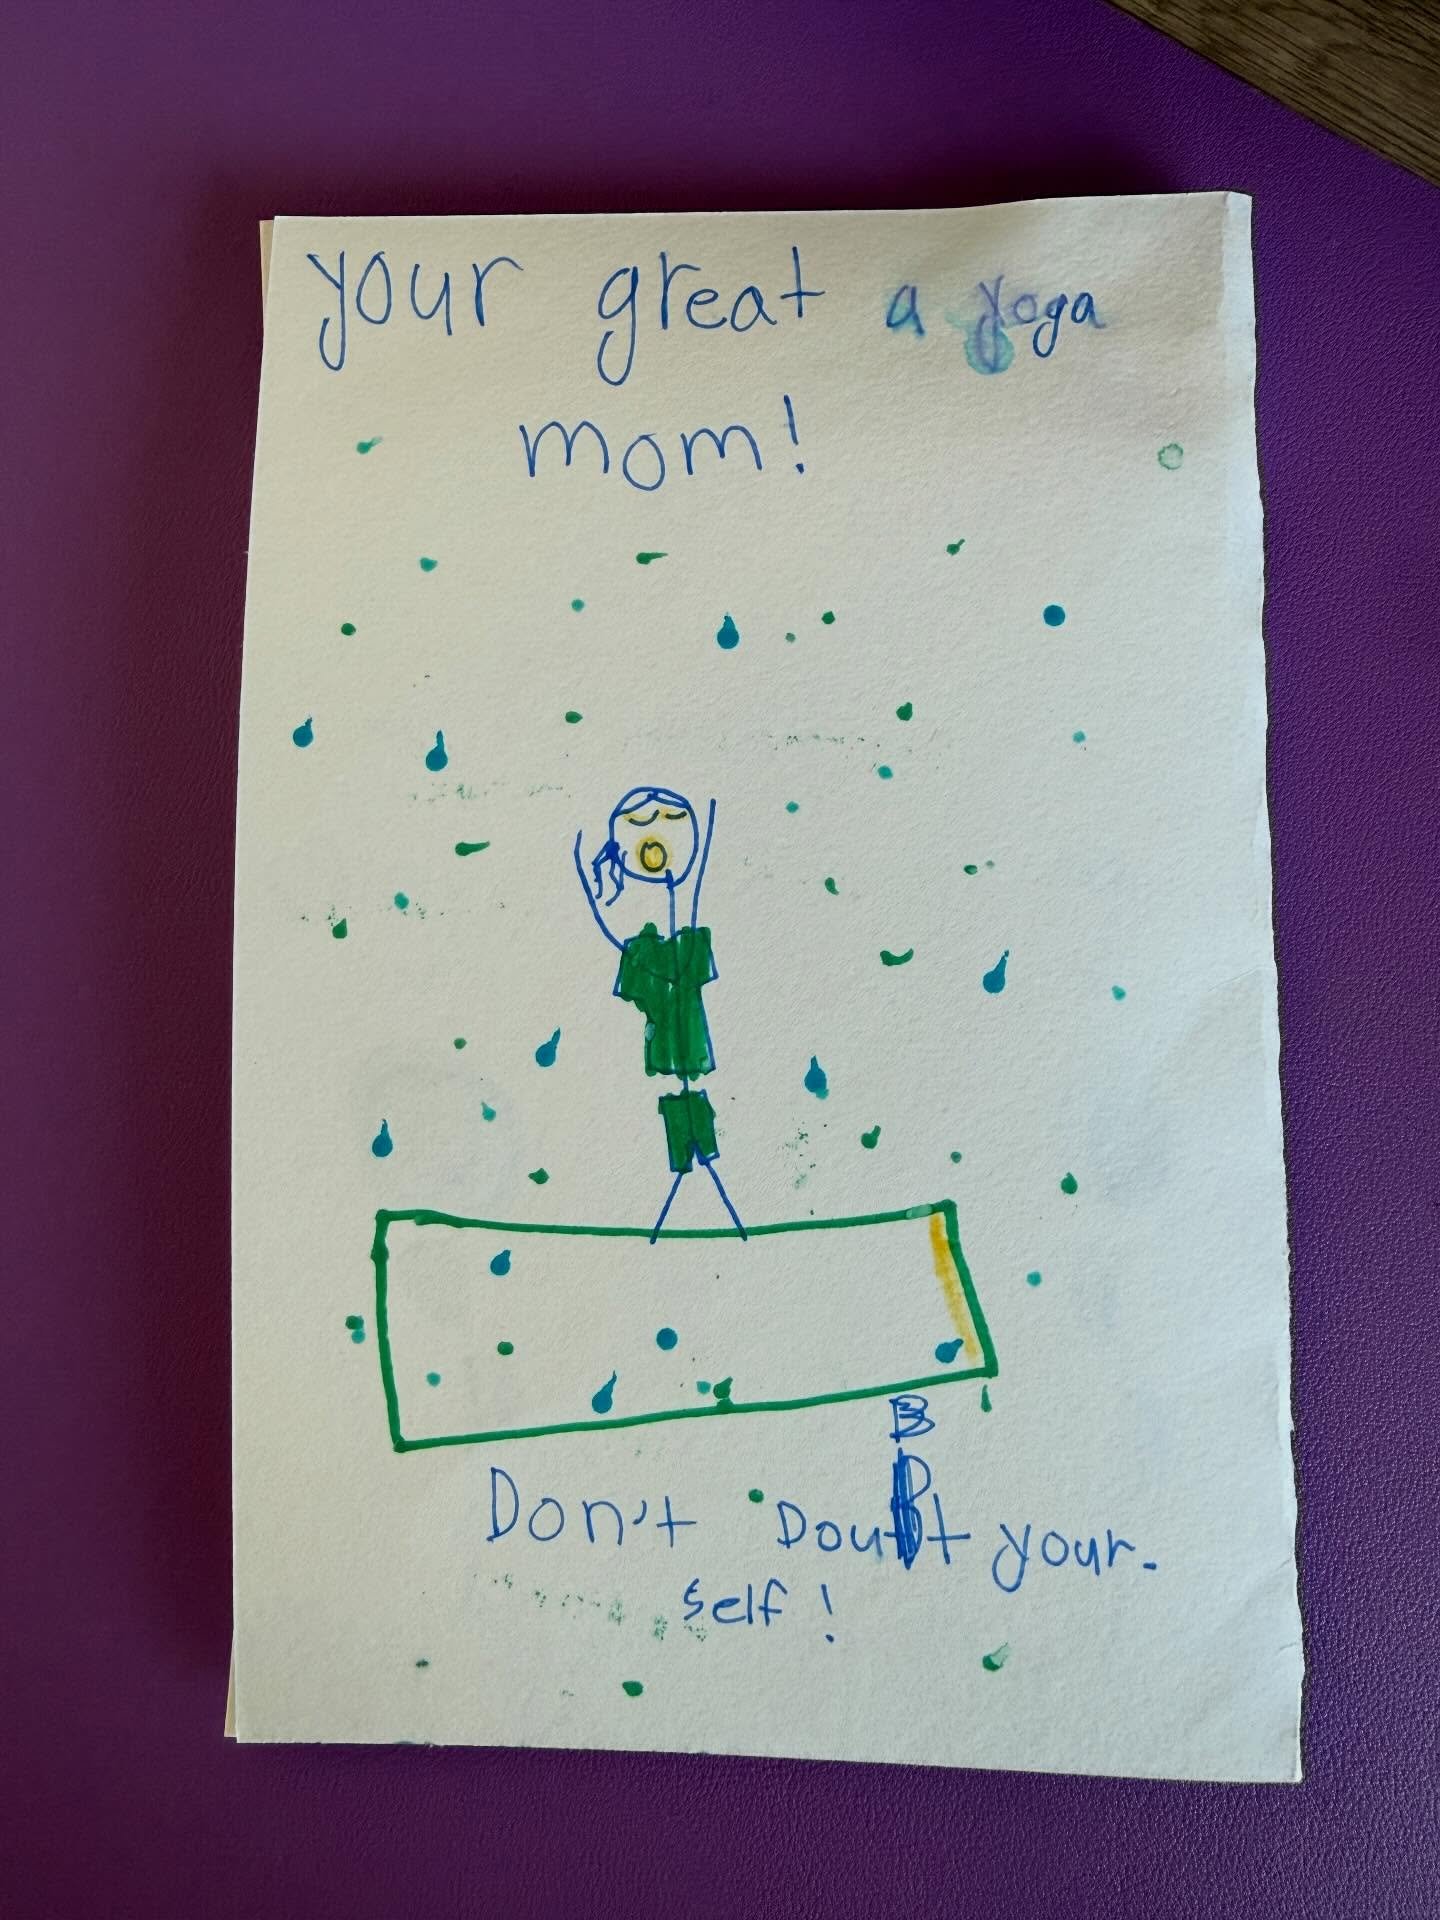 your great a yoga
mom!
B
Don't Doubt your-
self!